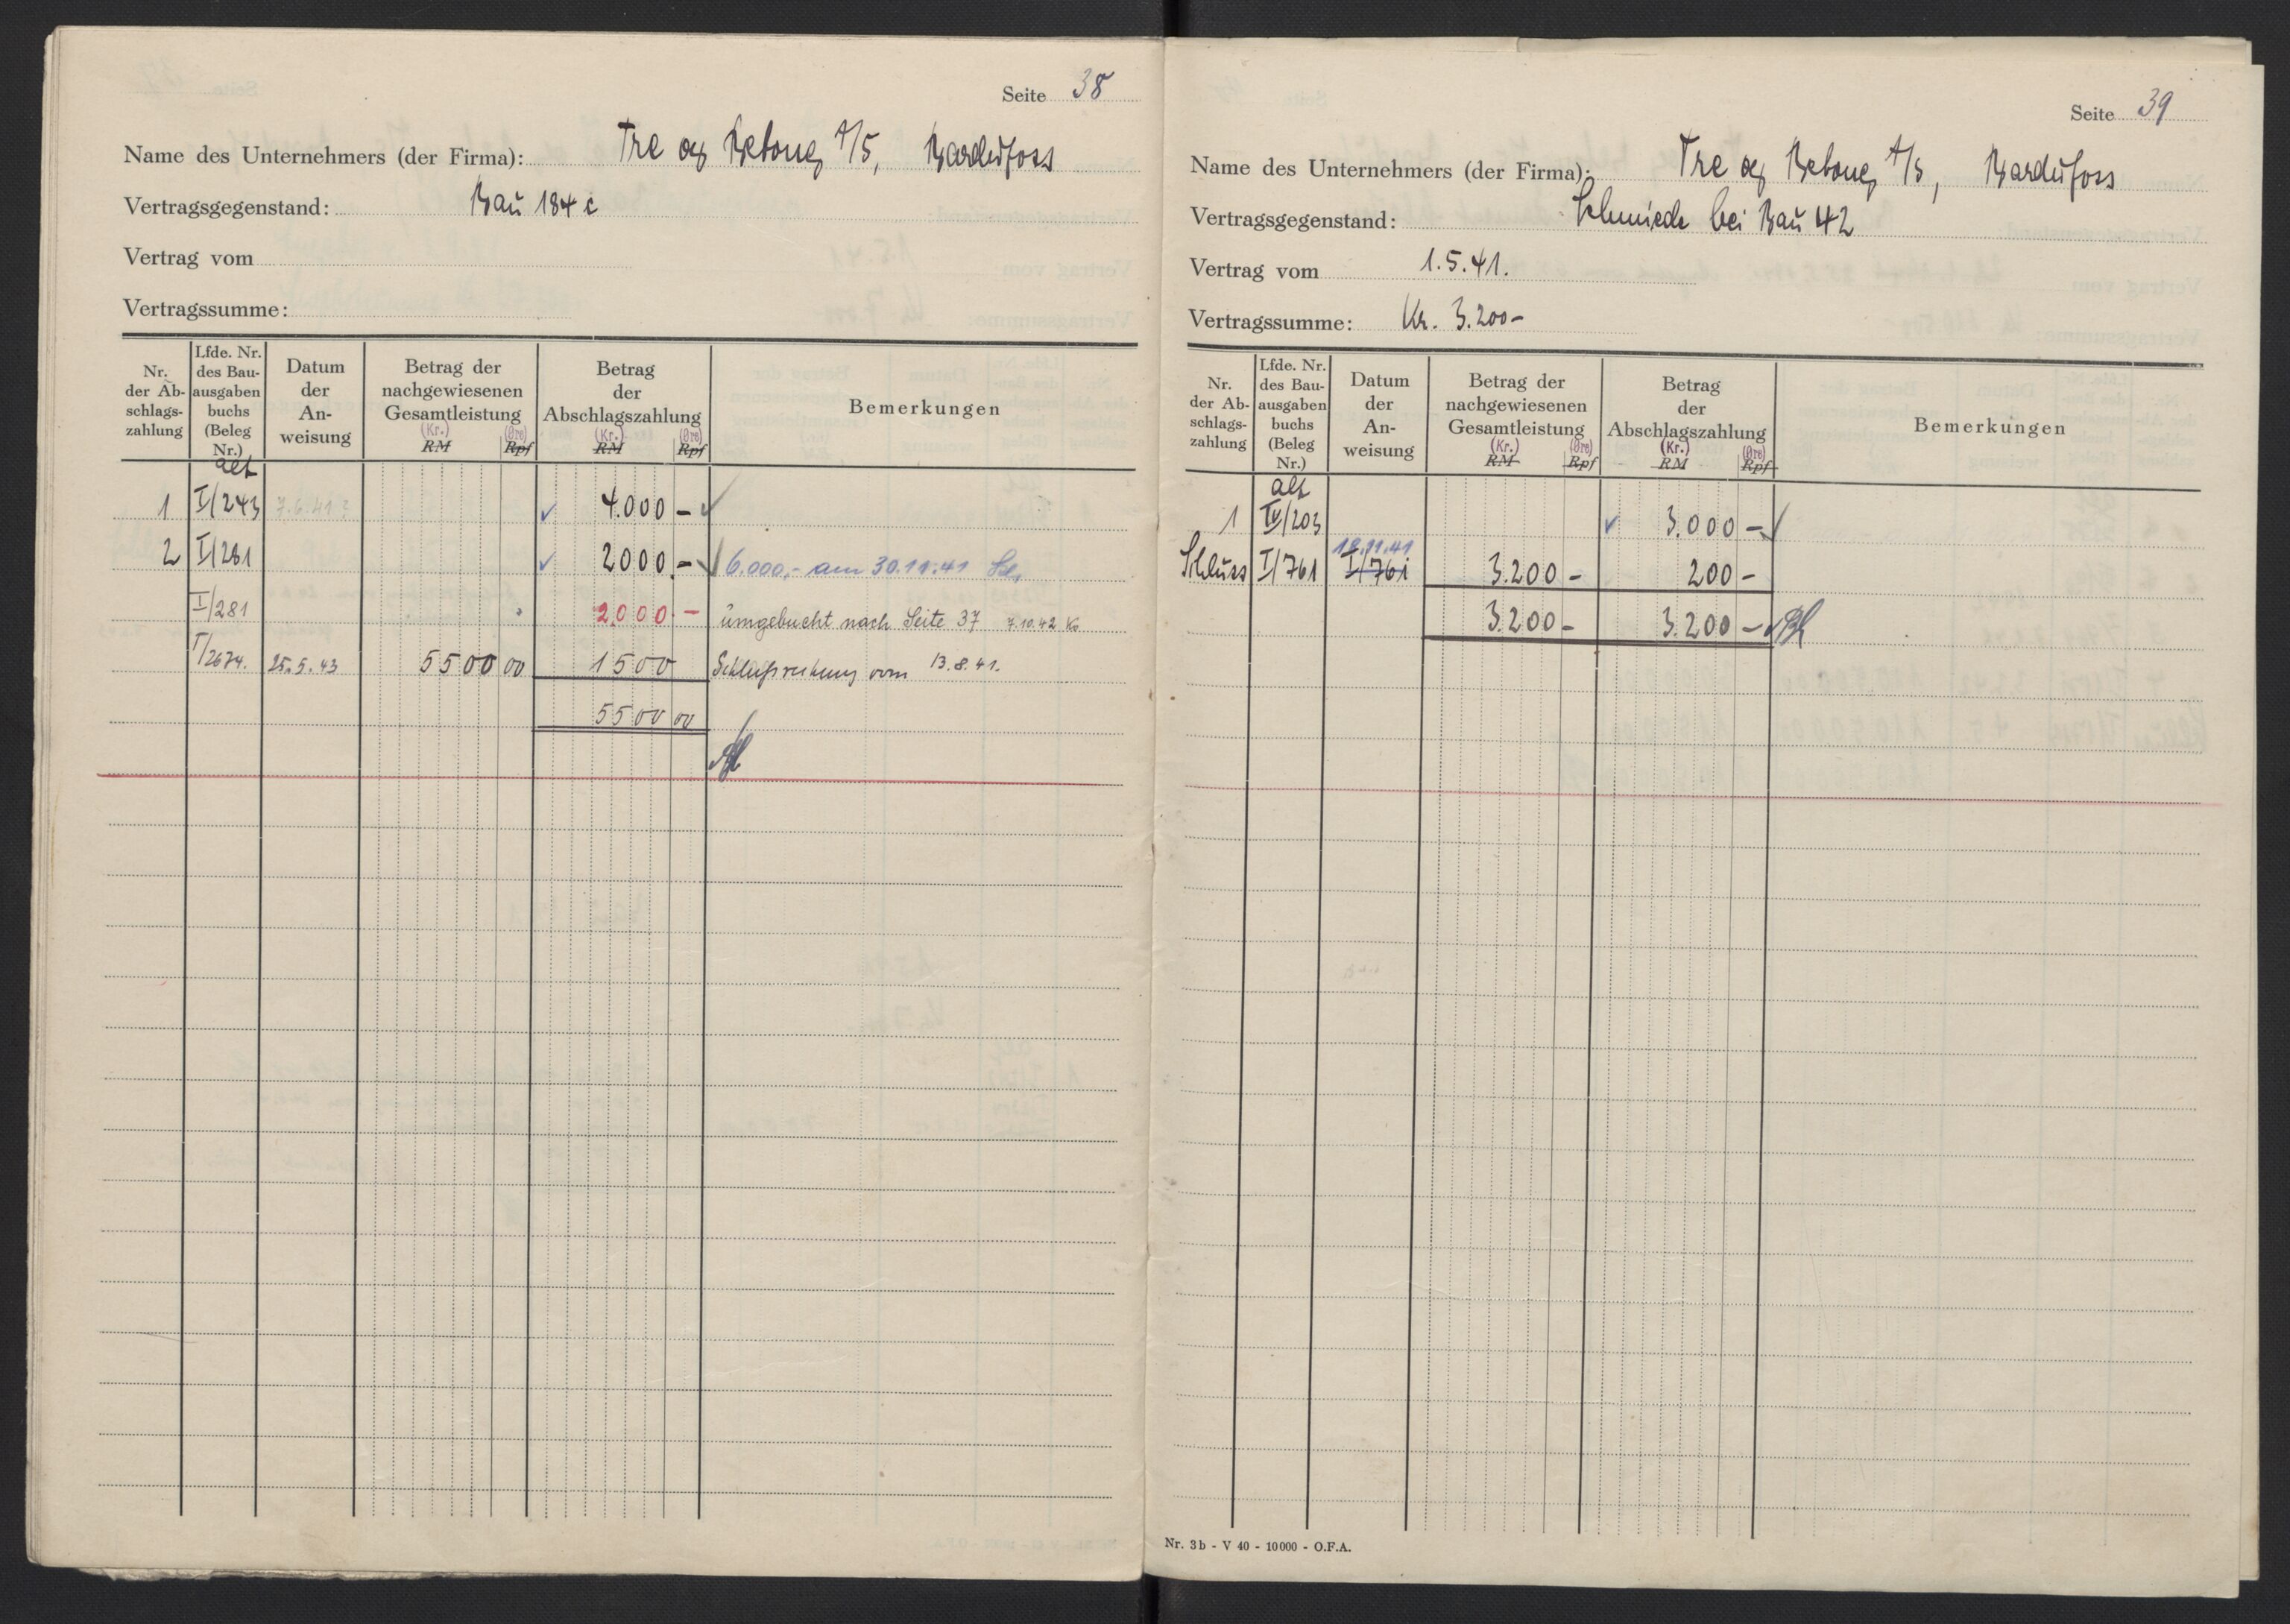 Seite 38
Name des Unternehmers (der Firma): Tre og Betong A/S, Bardufoss
Vertragsgegenstand: Bau 184 c
Vertrag vom
Vertragssumme:
Nr. der Ab-schlags-zahlung
Lfde. Nr. des Bau-ausgaben buchs (Beleg Nr.)
Datum der An-weisung
Betrag der nachgewiesenen Gesamtleistung (Kr.) RM (Øre) Rpf
Betrag der Abschlagszahlung (Kr.) RM (Øre) Rpf
Bemerkungen
alt
1 I/243 7.6.41 4.000 –
2 I/281 2000.– 6.000,- am 30.11.41
I/281 2000.– umgebucht nach Seite 37 7.10.42 Ko
I/2674. 25.5.43 5500 00 1500 Schlußrechnung vom 13.8.41.
5500 00
Seite 39
Name des Unternehmers (der Firma): Tre og Betong A/S, Bardufoss
Vertragsgegenstand: Schmiede bei Bau 42
Vertrag vom 1.5.41.
Vertragssumme: Kr. 3.200–
Nr. der Ab-schlags-zahlung
Lfde. Nr. des Bau-ausgaben buchs (Beleg Nr.)
Datum der An-weisung
Betrag der nachgewiesenen Gesamtleistung (Kr.) RM (Øre) Rpf
Betrag der Abschlagszahlung (Kr.) RM (Øre) Rpf
Bemerkungen
alt
1 IV/203 3.000 –
18.11.41
Schluss I/761 I/761 3.200 – 200 –
3.200 – 3.200 –
Nr. 3b - V 40 - 10000 - O.F.A.